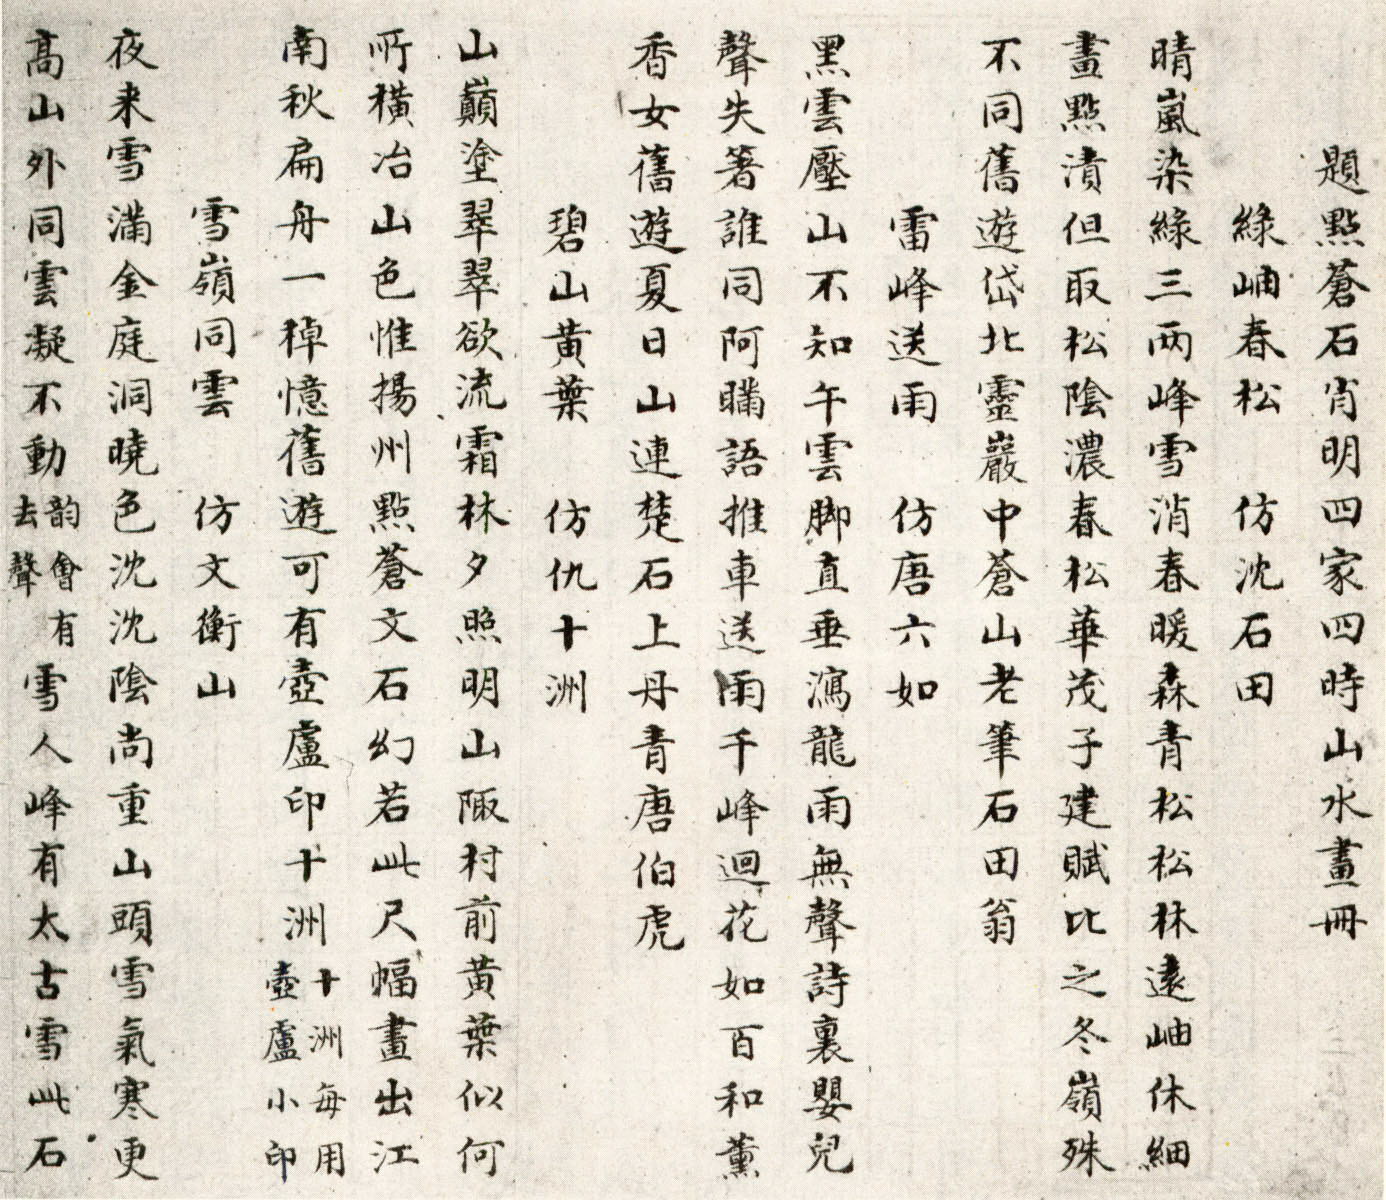 題點蒼石肖明四家四時山水畫冊
綠岫春松　仿沈石田
晴嵐染綠三兩峰雪消春暖森青松松林遠岫休細
畫點漬但取松陰濃春松華茂子建賦比之冬嶺殊
不同舊遊岱北靈巖中蒼山老筆石田翁
雷峰送雨　仿唐六如
黑雲壓山不知午雲脚直垂瀉龍雨無聲詩裏嬰兒
聲失箸誰同阿瞞語推車送雨千峰迴花如百和薰
香女舊遊夏日山連楚石上丹青唐伯虎
碧山黃葉　仿仇十洲
山巔塗翠翠欲流霜林夕照明山陬村前黃葉似何
所橫冶山色惟揚州點蒼文石幻若此尺幅畫出江
南秋扁舟一棹憶舊遊可有壺盧印十洲十洲每用壺盧小印
雪嶺同雲　仿文衡山
夜来雪滿金庭洞曉色沈沈陰尚重山頭雪氣寒更
高山外同雲凝不動韵會有去聲雪人峰有太古雪此石